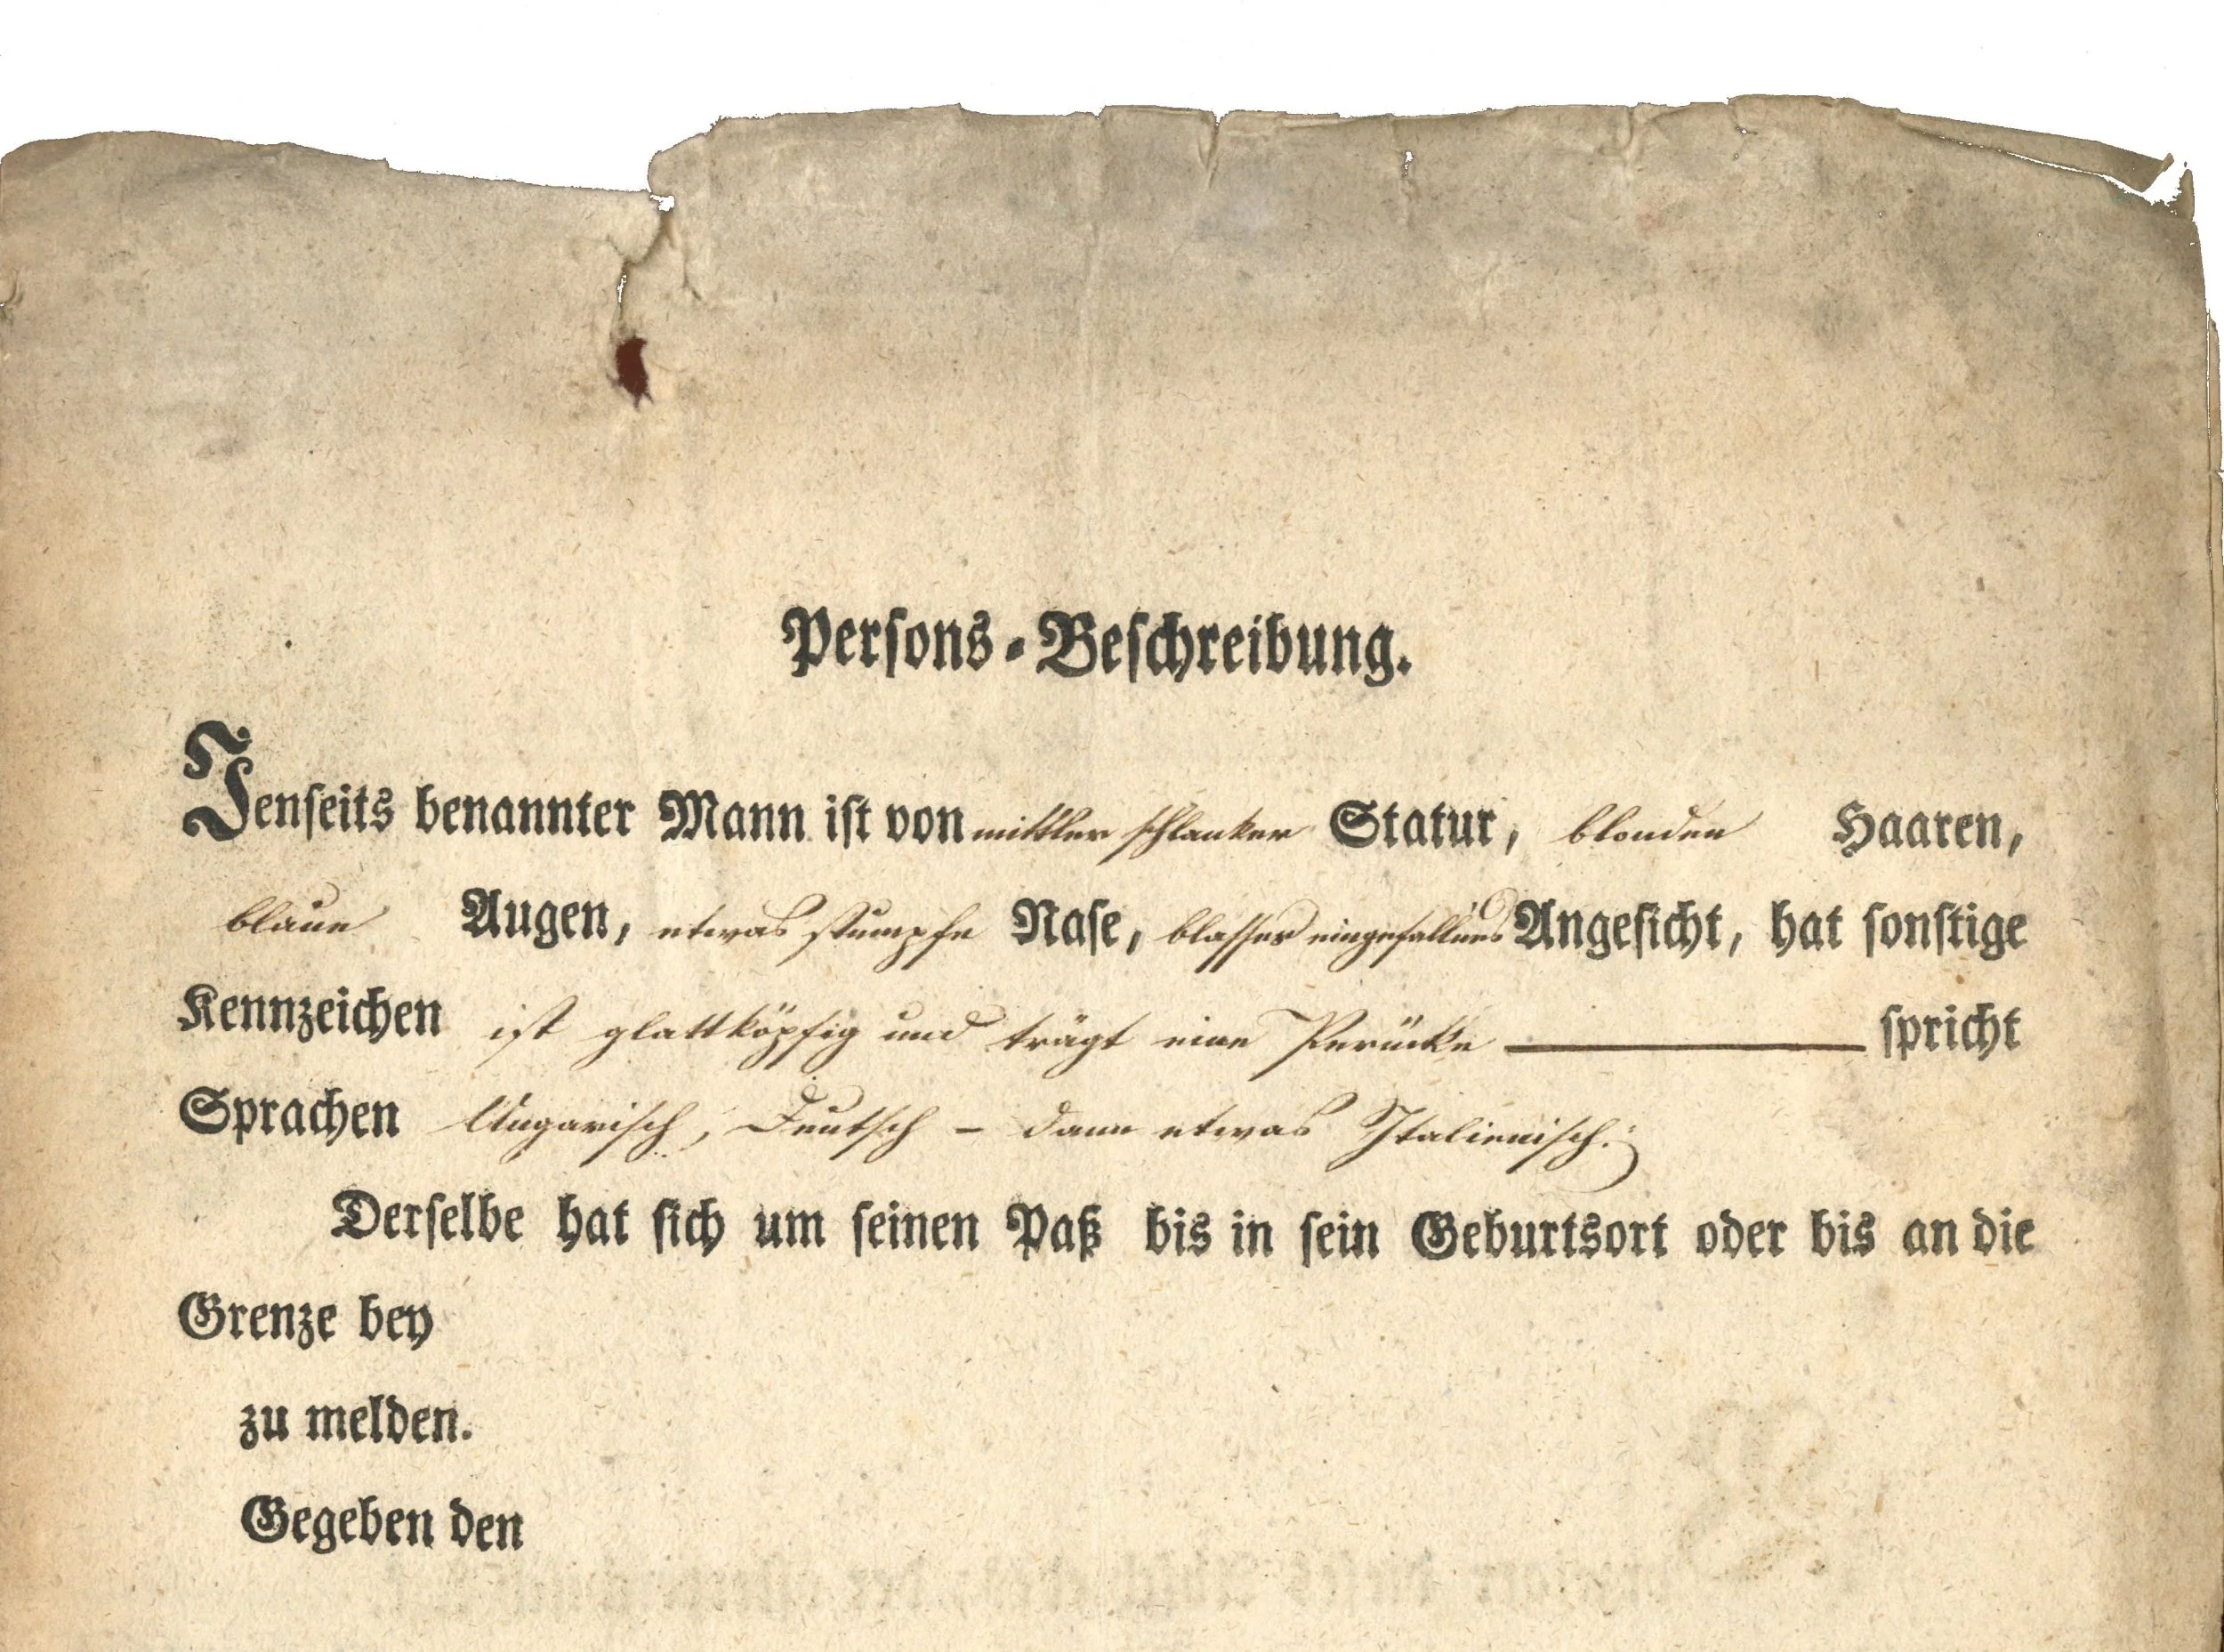 Persons-Beschreibung.
Jenseits benannter Mann ist von mittler schlanker Statur, blonden Haaren,
blaue Augen, etwas stumpfe Nase, blasses eingefallenes Angesicht, hat sonstige
Kennzeichen ist glattköpfig und trägt eine Perücke spricht
Sprachen Ungarisch, Deutsch – dann etwas Italienisch.
Derselbe hat sich um seinen Paß bis in sein Geburtsort oder bis an die
Grenze bey
zu melden.
Gegeben den